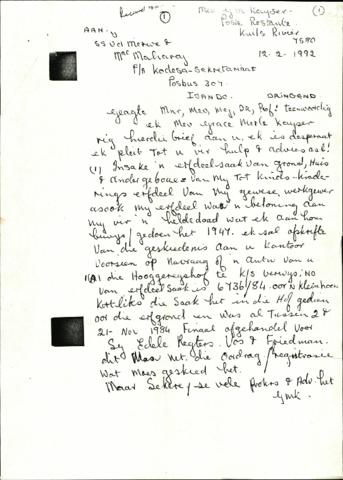 (1)
Mev G.M. Keyser.
(1)
Poste Restante
Kuils Rivier
7580
12-2-1992
AAN:
SS v/d Merwe &
Mnr Maharaj
P/A Kodesa-Sekretariaat
Posbus 307.
ISANDO.
DRINGEND
Geagte Mnr, Mev, Mej, DR, Prof! Teenwoordig
ek Mev Grace Merle Keyser
rig hierdie brief aan u. ek is desperaat
ek pleit tot u vir hulp & advies asb!
(1) Insake 'n erfdeel-saak van grond, Huis
& Ander geboue = van My tot Kinds-kinde-
rings erfdeel van My gewese werkgewer
asook My erfdeel was 'n beloning aan
my vir 'n heldedaad wat ek aan hom
bewys/gedoen het 1947. ek sal afskrifte
van die geskiedenis aan u kantoor
voorsien op navraag of 'n antw van u
1(A) die Hooggeregshof te K/S verwys: NO
van erfdeel Saak is 6736/84. oor 'n Kleinhoewe
Kortliks die Saak het in die Hof gedien
oor die erfgrond en was al Tussen 2 &
21-Nov 1984 Finaal afgehandel voor
Sy Edele Regters. Vos & Friedman.
dit Mos net die oordrag/registrasie
wat moes geskied het.
Maar Sekere/se vele Prokrs & Adv. het
GMK.